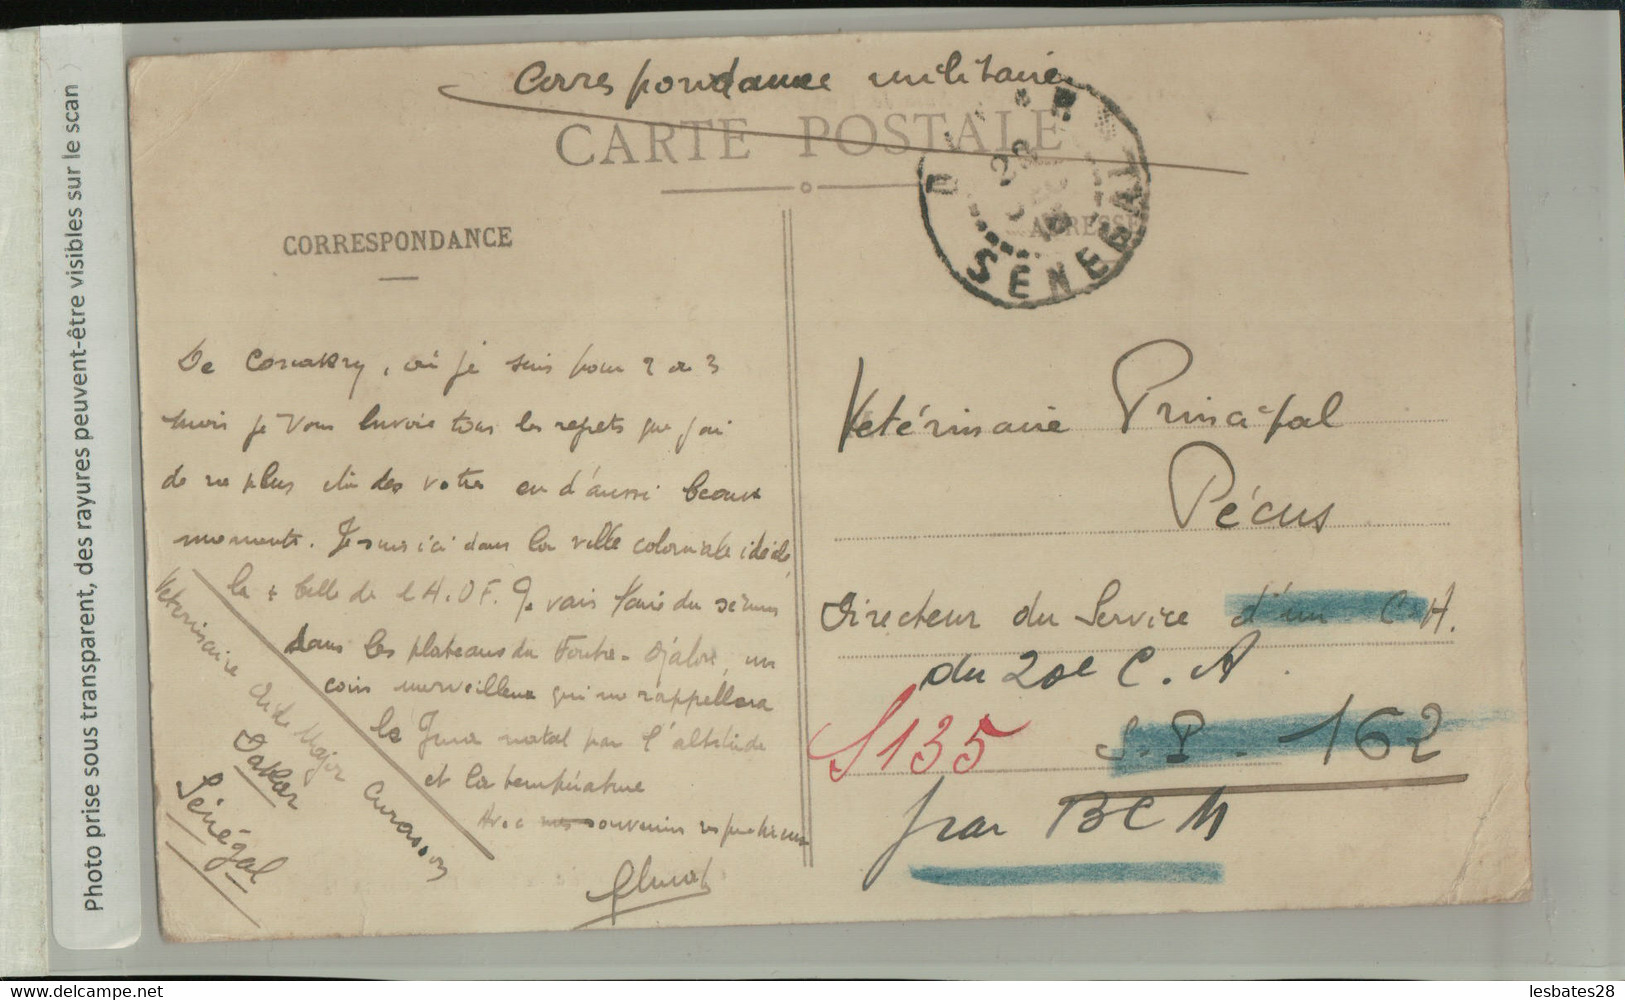 Photo prise sous transparent, des rayures peuvent-être visibles sur le scan
Correspondance militaire
CARTE POSTALE
SÉNÉGAL
CORRESPONDANCE
ADRESSE
De Conakry, où je suis pour 2 ou 3
mois je vous envoie tous les regrets que j'ai
de ne plus être des votres en d'aussi beaux
moments. Je suis ici dans la ville coloniale idéale,
la + belle de l'A.O.F. Je vais faire du sérum
dans les plateaux du Fouta-Djalon, un
coin merveilleux qui me rappellera
le Jura natal par l'altitude
et la température
Avec mes souvenirs respectueux
Vétérinaire Aide Major Curasson
Dakar
Sénégal
Vétérinaire Principal
Pécus
Directeur du Service d'un C.H.
du 20e C.A.
S135 S.P. 162
par BCM
lesbates28
Delcampe.net